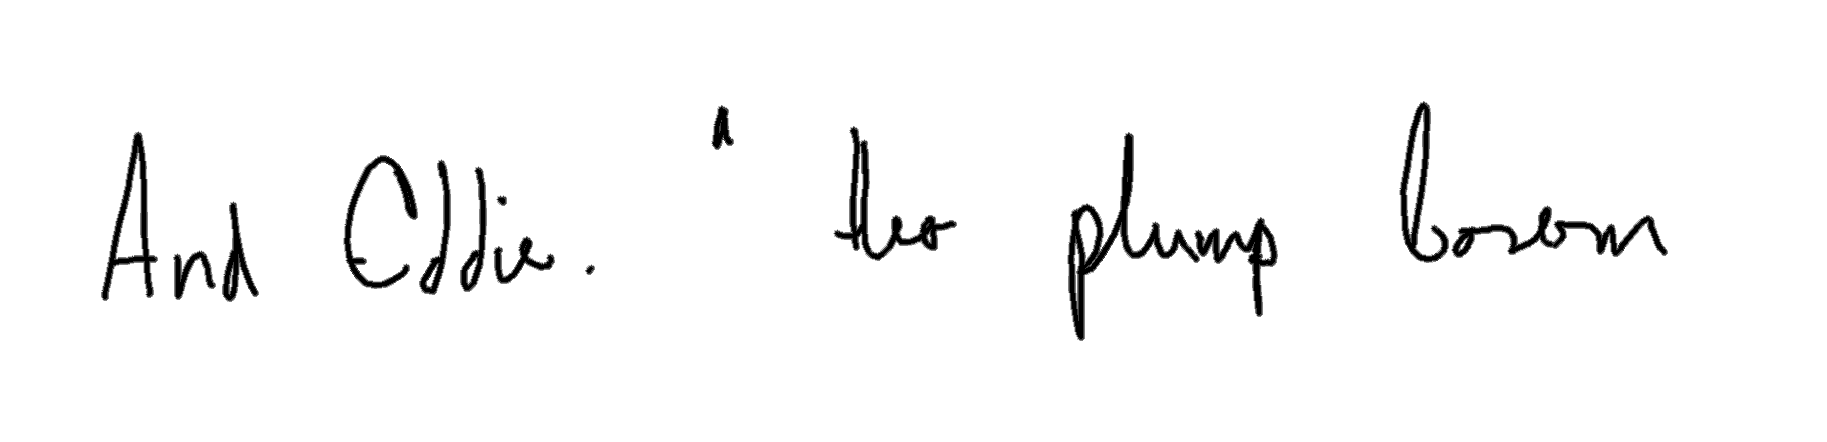 And Eddie. " the plump bosom